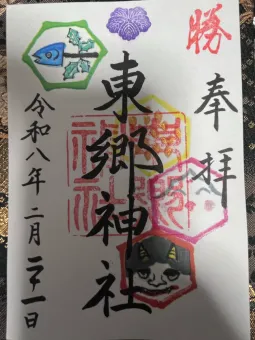 勝
奉拝
東郷神社
令和八年二月二十一日